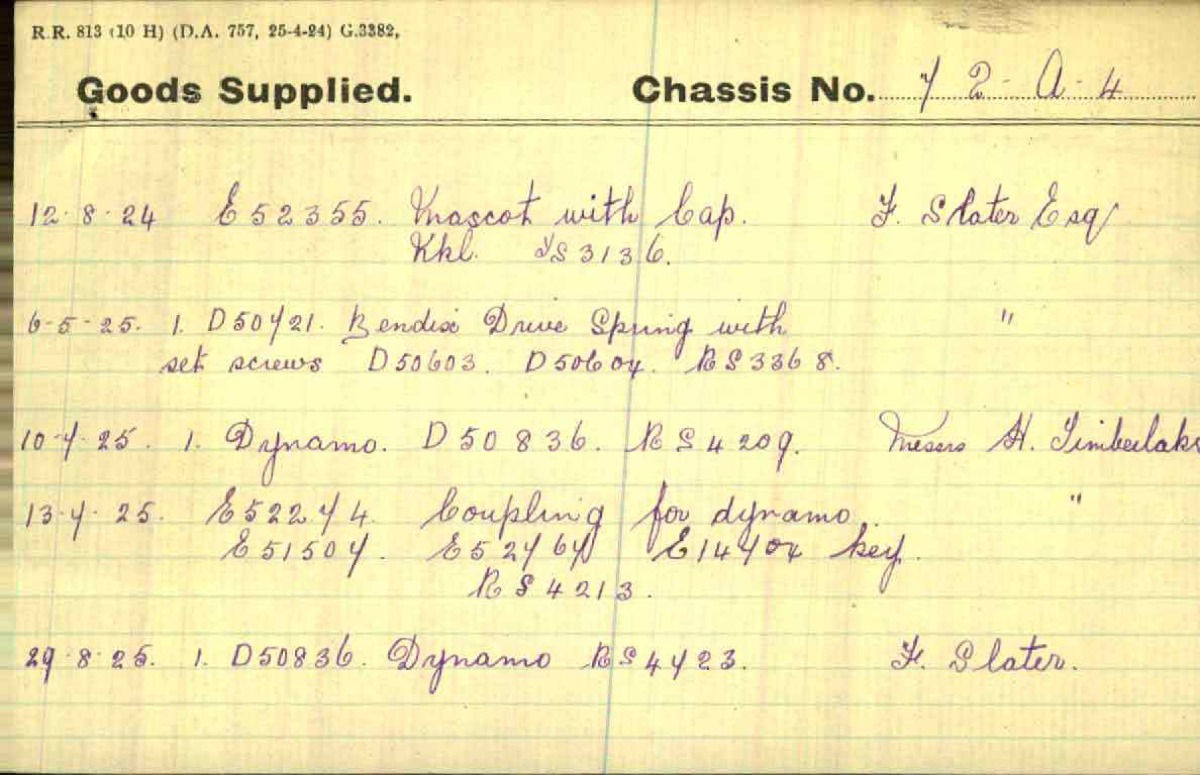 R.R. 813 (10 H) (D.A. 757, 25-4-24) G.3382,
Goods Supplied. Chassis No. 72-A-4
12-8-24 E52355. Mascot with Cap. F. Slater Esq
Nkl. JS3136.
6-5-25. 1. D50721. Bendix Drive Spring with "
set screws D50603. D50604. RS3368.
10-7-25. 1. Dynamo. D50836. RS4209. Messrs H. Timberlake
13-7-25. E52274. Coupling for dynamo. "
E51507. E52767 E14704 key.
RS4213.
29-8-25. 1. D50836. Dynamo RS4723. F. Slater.